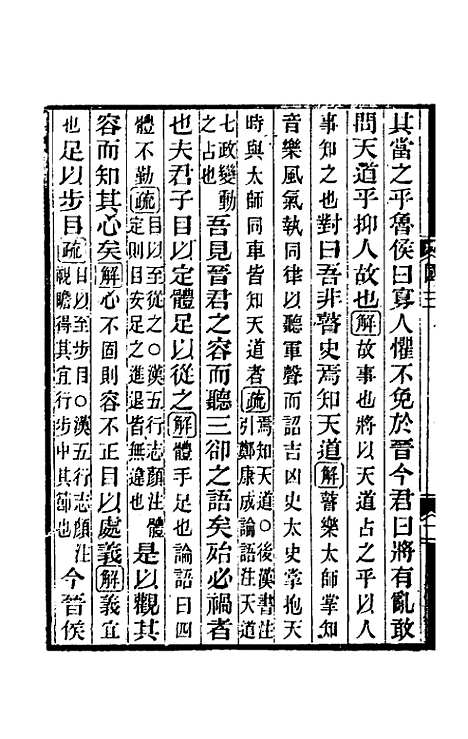 其當之乎魯侯曰寡人懼不免於晉今君曰將有亂敢
問天道乎抑人故也解故事也將以天道占之乎以人
事知之也對曰吾非瞽史焉知天道解瞽樂太師掌知
音樂風氣執同律以聽軍聲而詔吉凶史太史掌抱天
時與太師同車皆知天道者疏焉知天道○後漢書注引鄭康成論語注天道
七政變動之占也吾見晉君之容而聽三郤之語矣殆必禍者
也夫君子目以定體足以從之解體手足也論語曰四
體不勤疏目以至從之○漢五行志顏注體定則目安足之進退皆無違也是以觀其
容而知其心矣解心不固則容不正目以處義解義宜
也足以步目疏目以至步目○漢五行志顏注視瞻得其宜行步中其節也今晉侯